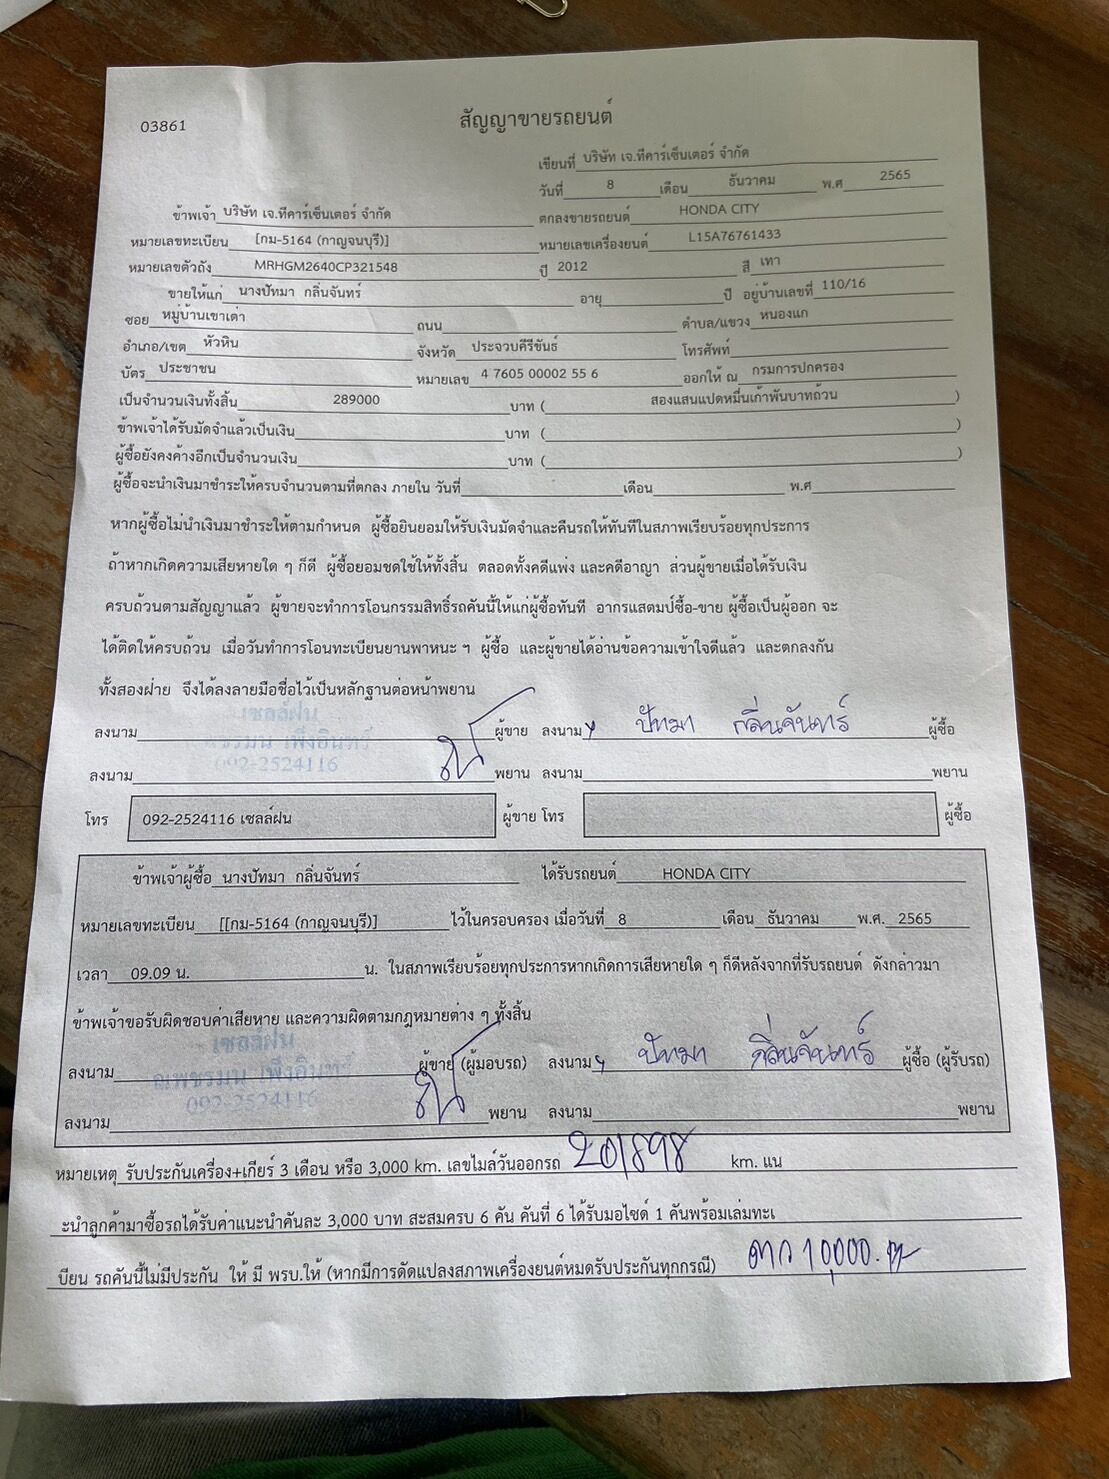 03861
สัญญาขายรถยนต์
เขียนที่ บริษัท เจ.ทีคาร์เซ็นเตอร์ จำกัด
วันที่ 8 เดือน ธันวาคม พ.ศ 2565
ข้าพเจ้า บริษัท เจ.ทีคาร์เซ็นเตอร์ จำกัด ตกลงขายรถยนต์ HONDA CITY
หมายเลขทะเบียน [กม-5164 (กาญจนบุรี)] หมายเลขเครื่องยนต์ L15A76761433
หมายเลขตัวถัง MRHGM2640CP321548 ปี 2012 สี เทา
ขายให้แก่ นางปัทมา กลิ่นจันทร์ อายุ ปี อยู่บ้านเลขที่ 110/16
ซอย หมู่บ้านเขาเต่า ถนน ตำบล/แขวง หนองแก
อำเภอ/เขต หัวหิน จังหวัด ประจวบคีรีขันธ์ โทรศัพท์
บัตร ประชาชน หมายเลข 4 7605 00002 55 6 ออกให้ ณ กรมการปกครอง
เป็นจำนวนเงินทั้งสิ้น 289000 บาท ( สองแสนแปดหมื่นเก้าพันบาทถ้วน )
ข้าพเจ้าได้รับมัดจำแล้วเป็นเงิน บาท ( )
ผู้ซื้อยังคงค้างอีกเป็นจำนวนเงิน บาท ( )
ผู้ซื้อจะนำเงินมาชำระให้ครบจำนวนตามที่ตกลง ภายใน วันที่ เดือน พ.ศ
หากผู้ซื้อไม่นำเงินมาชำระให้ตามกำหนด ผู้ซื้อยินยอมให้รับเงินมัดจำและคืนรถให้ทันทีในสภาพเรียบร้อยทุกประการ
ถ้าหากเกิดความเสียหายใด ๆ ก็ดี ผู้ซื้อยอมชดใช้ให้ทั้งสิ้น ตลอดทั้งคดีแพ่ง และคดีอาญา ส่วนผู้ขายเมื่อได้รับเงิน
ครบถ้วนตามสัญญาแล้ว ผู้ขายจะทำการโอนกรรมสิทธิ์รถคันนี้ให้แก่ผู้ซื้อทันที อากรแสตมป์ซื้อ-ขาย ผู้ซื้อเป็นผู้ออก จะ
ได้ติดให้ครบถ้วน เมื่อวันทำการโอนทะเบียนยานพาหนะ ฯ ผู้ซื้อ และผู้ขายได้อ่านข้อความเข้าใจดีแล้ว และตกลงกัน
ทั้งสองฝ่าย จึงได้ลงลายมือชื่อไว้เป็นหลักฐานต่อหน้าพยาน
เซลล์ฝน
ลงนาม ผู้ขาย ลงนาม ปัทมา กลิ่นจันทร์ ผู้ซื้อ
092-2524116
ลงนาม พยาน ลงนาม พยาน
โทร 092-2524116 เซลล์ฝน ผู้ขาย โทร ผู้ซื้อ
ข้าพเจ้าผู้ซื้อ นางปัทมา กลิ่นจันทร์ ได้รับรถยนต์ HONDA CITY
หมายเลขทะเบียน [[กม-5164 (กาญจนบุรี)] ไว้ในครอบครอง เมื่อวันที่ 8 เดือน ธันวาคม พ.ศ. 2565
เวลา 09.09 น. น. ในสภาพเรียบร้อยทุกประการหากเกิดการเสียหายใด ๆ ก็ดีหลังจากที่รับรถยนต์ ดังกล่าวมา
ข้าพเจ้าขอรับผิดชอบค่าเสียหาย และความผิดตามกฎหมายต่าง ๆ ทั้งสิ้น
เซลล์ฝน
ลงนาม ผู้ขาย (ผู้มอบรถ) ลงนาม ปัทมา กลิ่นจันทร์ ผู้ซื้อ (ผู้รับรถ)
092-2524116
ลงนาม พยาน ลงนาม พยาน
หมายเหตุ รับประกันเครื่อง+เกียร์ 3 เดือน หรือ 3,000 km. เลขไมล์วันออกรถ 201898 km. แน
ะนำลูกค้ามาซื้อรถได้รับค่าแนะนำคันละ 3,000 บาท สะสมครบ 6 คัน คันที่ 6 ได้รับมอไซด์ 1 คันพร้อมเล่มทะเ
บียน รถคันนี้ไม่มีประกัน ให้ มี พรบ.ให้ (หากมีการดัดแปลงสภาพเครื่องยนต์หมดรับประกันทุกกรณี) ดาว 10,000.-